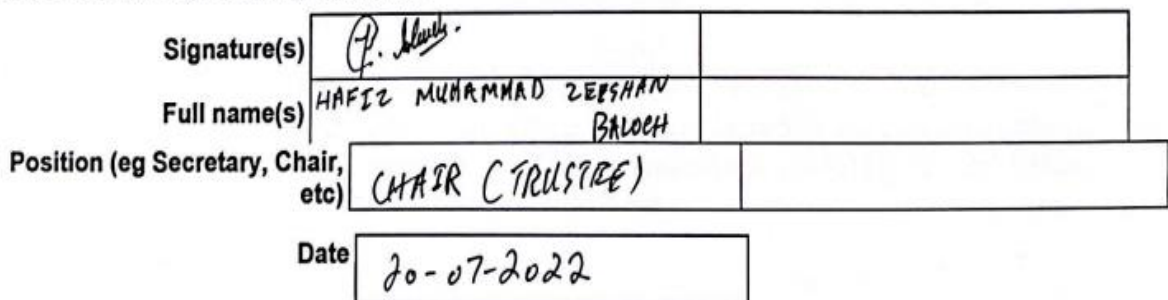 Signature(s)
Full name(s) HAFIZ MUHAMMAD ZEESHAN
BALOCH
Position (eg Secretary, Chair,
etc) CHAIR (TRUSTEE)
Date 20-07-2022